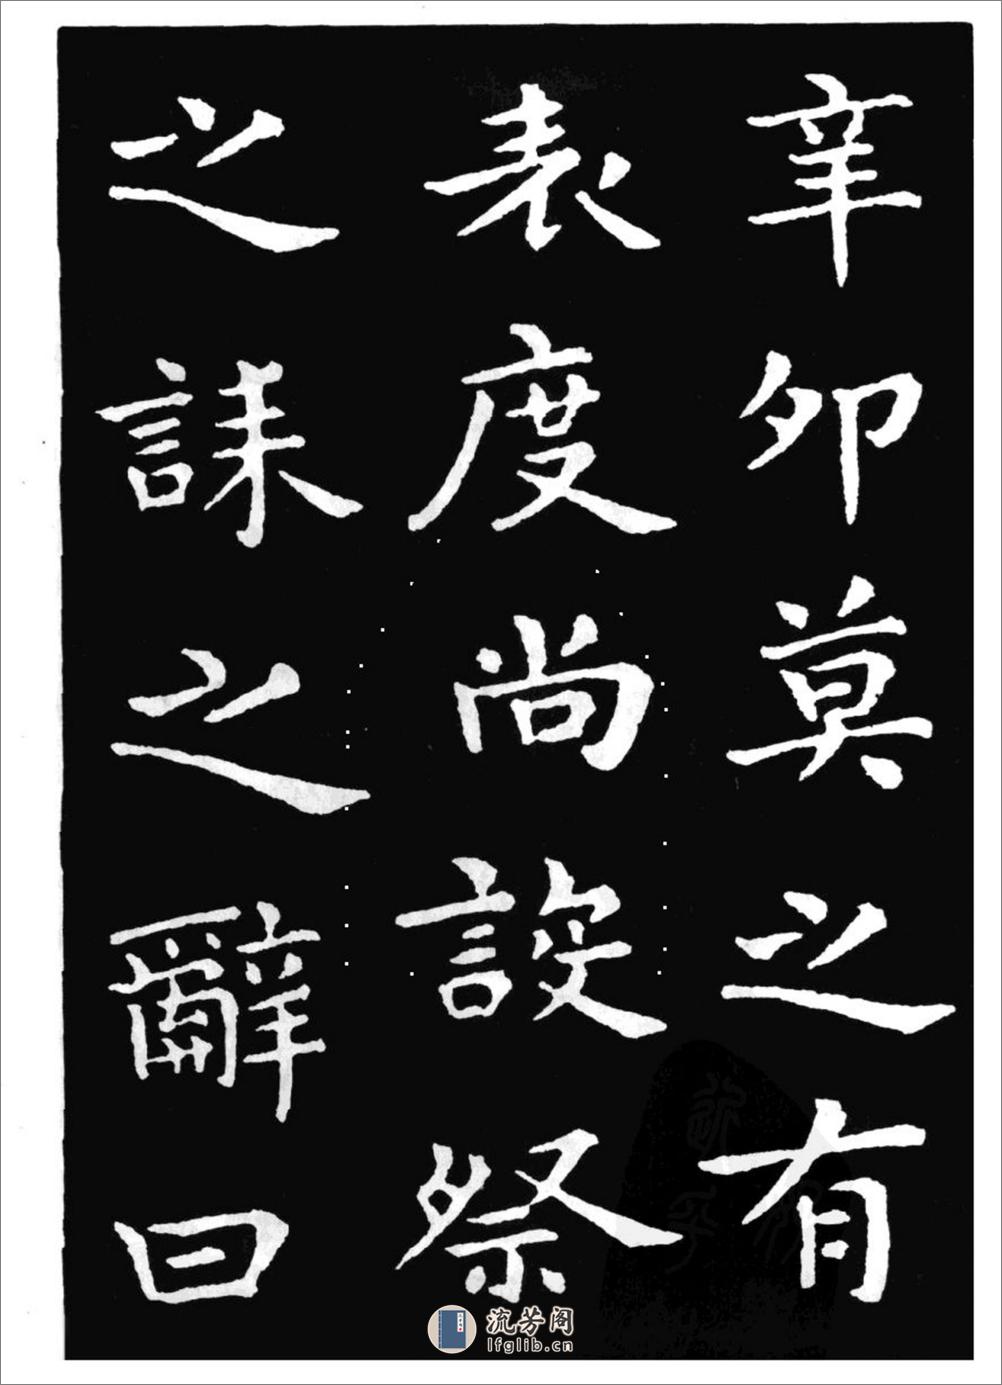 辛卯莫之有
表度尚設祭
之誄之辭曰
流芳阁
lfglib.cn